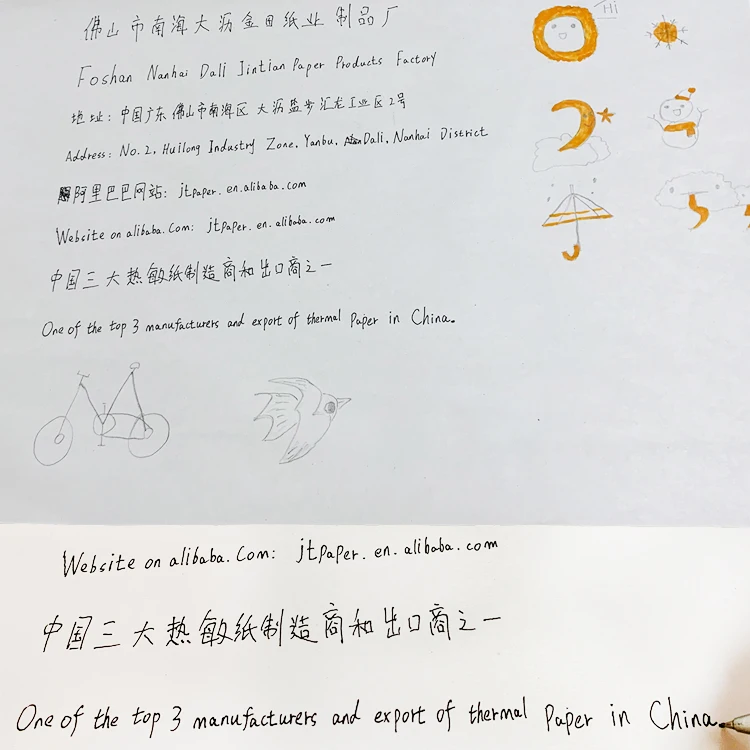 佛山市南海大沥金田纸业制品厂
Hi
Foshan Nanhai Dali Jintian Paper Products Factory
地址：中国广东佛山市南海区大沥盐步汇龙工业区2号
Address: No.2, Huilong Industry Zone, Yanbu, Dali, Nanhai District
阿里巴巴网站：jtpaper.en.alibaba.com
Website on alibaba.Com: jtpaper.en.alibaba.com
中国三大热敏纸制造商和出口商之一
One of the top 3 manufacturers and export of thermal Paper in China.
Website on alibaba.Com: jtpaper.en.alibaba.com
中国三大热敏纸制造商和出口商之一
One of the top 3 manufacturers and export of thermal Paper in China.